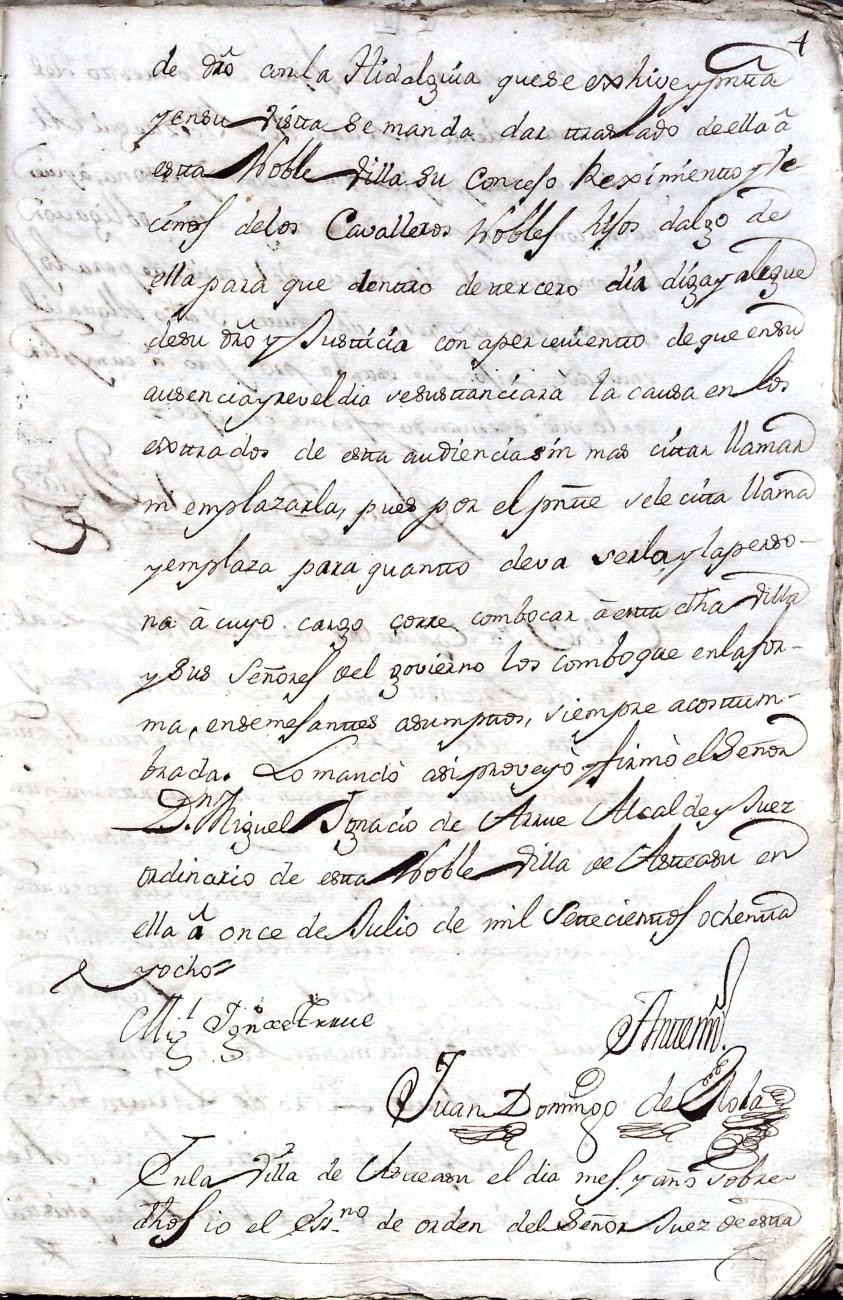 4
de dro con la Hidalguia que se exhive y pnta
y en su vista se manda dar traslado de ella â
esta Noble Villa su Concejo Reximiento y Ve
cinos de los Cavalleros Nobles hijos dalgo de
ella para que dentro de tercero dia diga y alegue
de su dro y Justicia con apercevimiento de que en su
ausencia y reveldia se sustanciarà la causa en los
extrados de esta audiencia sin mas citar llamar
ni emplazarla, pues por el pnte se le cita llama
y emplaza para quanto deva serlo, y la perso-
na à cuyo cargo corre combocar à esta dha Villa
y sus Señores del govierno los comboque en la for-
ma, en semejantes asumptos, siempre acostum-
brada. Lo mandò asi proveyò y firmò el Señor
Dn. Miguel Ignacio de Arrue Alcalde y Juez
ordinario de esta Noble Villa de Asteasu en
ella à once de Julio de mil Setecientos ochenta
y ocho=
Migl Igno de Arrue
Antemi.
Juan Domingo de
En la Villa de Asteasu el dia mes y año sobre
dhos io el Essno de orden del Señor Juez de esta